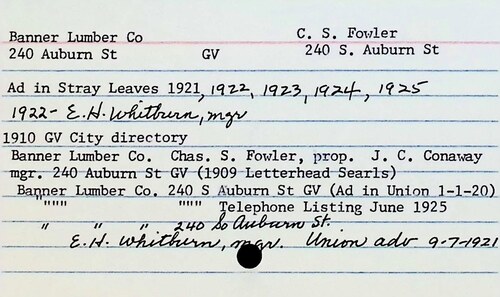 Banner Lumber Co C. S. Fowler
240 Auburn St GV 240 S. Auburn St
Ad in Stray Leaves 1921, 1922, 1923, 1924, 1925
1922- E.H. Whitburn, mgr
1910 GV City directory
Banner Lumber Co. Chas. S. Fowler, prop. J. C. Conaway
mgr. 240 Auburn St GV (1909 Letterhead Searls)
Banner Lumber Co. 240 S Auburn St GV (Ad in Union 1-1-20)
"""" """ Telephone Listing June 1925
" " " 240 So Auburn St.
E.H. Whitburn, mgr. Union adv 9-7-1921